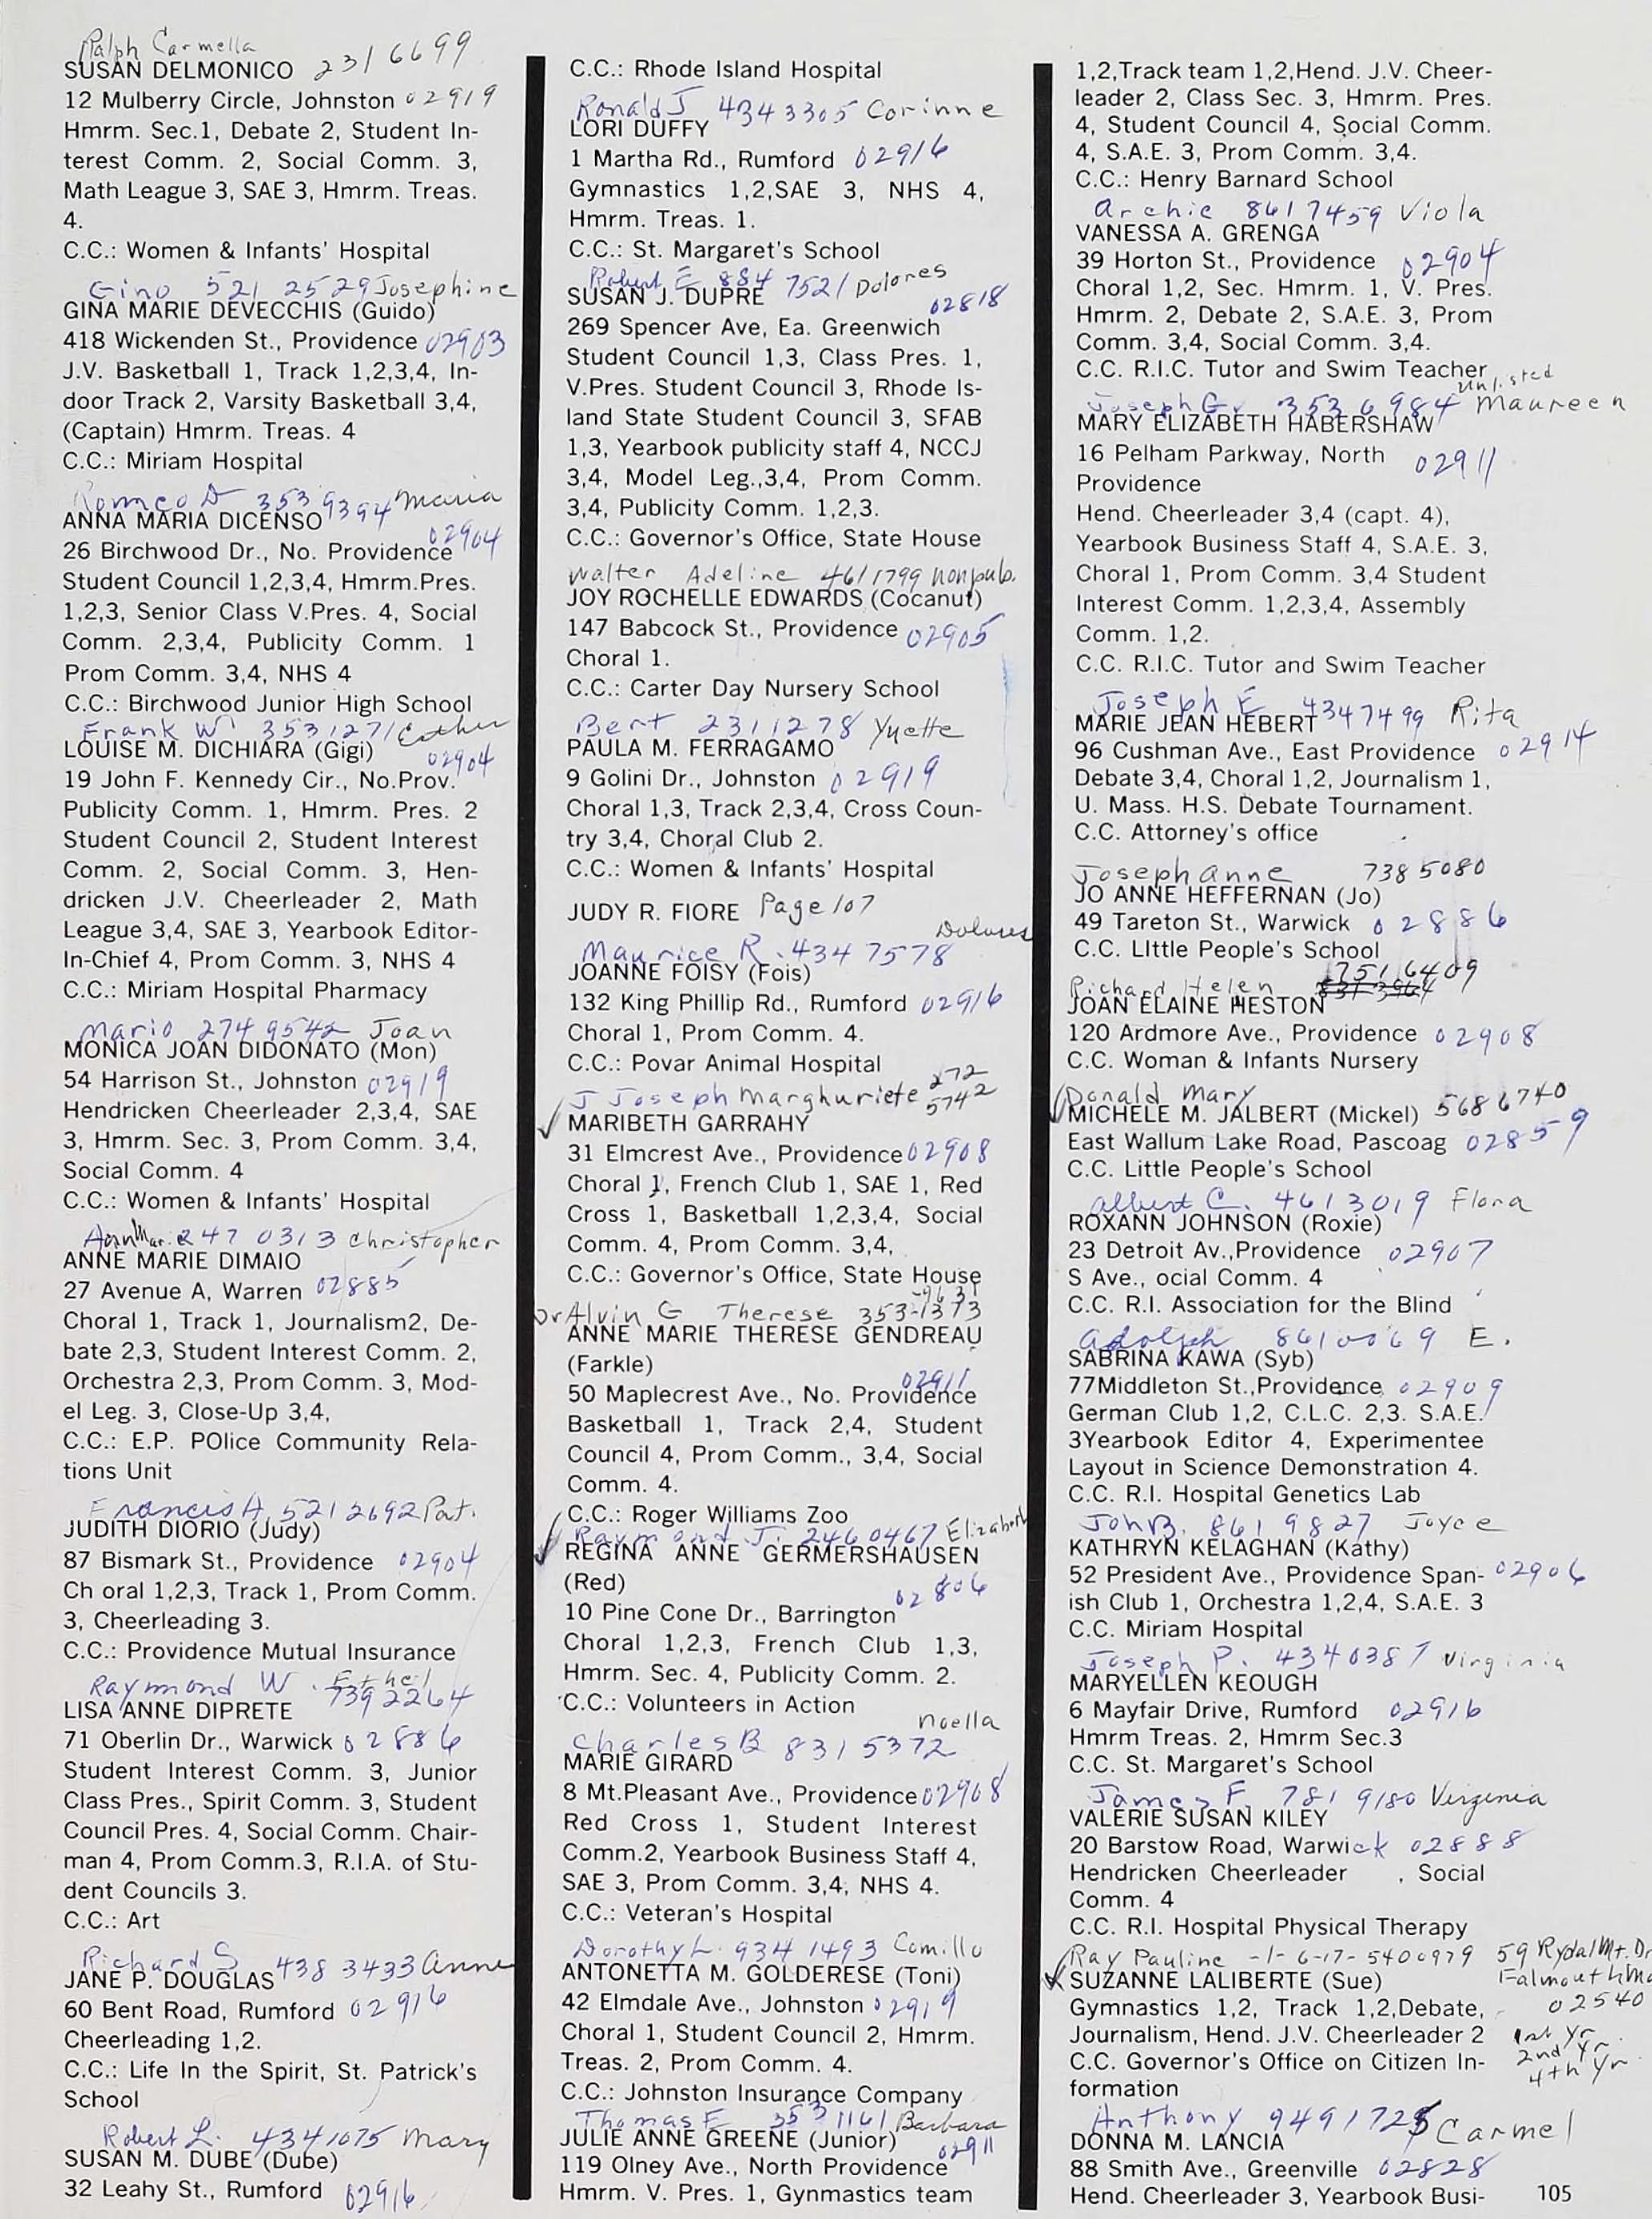 Ralph Carmella
SUSAN DELMONICO 231 6699
12 Mulberry Circle, Johnston 02919
Hmrm. Sec.1, Debate 2, Student In-
terest Comm. 2, Social Comm. 3,
Math League 3, SAE 3, Hmrm. Treas.
4.
C.C.: Women & Infants' Hospital
Gino 521 2529 Josephine
GINA MARIE DEVECCHIS (Guido)
418 Wickenden St., Providence 02903
J.V. Basketball 1, Track 1,2,3,4, In-
door Track 2, Varsity Basketball 3,4,
(Captain) Hmrm. Treas. 4
C.C.: Miriam Hospital
Romeo D 353 9394 Maria
ANNA MARIA DICENSO
02904
26 Birchwood Dr., No. Providence
Student Council 1,2,3,4, Hmrm.Pres.
1,2,3, Senior Class V.Pres. 4, Social
Comm. 2,3,4, Publicity Comm. 1
Prom Comm. 3,4, NHS 4
C.C.: Birchwood Junior High School
Frank W 353 1271 Esther
LOUISE M. DICHIARA (Gigi) 02904
19 John F. Kennedy Cir., No.Prov.
Publicity Comm. 1, Hmrm. Pres. 2
Student Council 2, Student Interest
Comm. 2, Social Comm. 3, Hen-
dricken J.V. Cheerleader 2, Math
League 3,4, SAE 3, Yearbook Editor-
In-Chief 4, Prom Comm. 3, NHS 4
C.C.: Miriam Hospital Pharmacy
Mario 274 9542 Joan
MONICA JOAN DIDONATO (Mon)
54 Harrison St., Johnston 02919
Hendricken Cheerleader 2,3,4, SAE
3, Hmrm. Sec. 3, Prom Comm. 3,4,
Social Comm. 4
C.C.: Women & Infants' Hospital
AnnMarie 247 0313 Christopher
ANNE MARIE DIMAIO
27 Avenue A, Warren 02885
Choral 1, Track 1, Journalism2, De-
bate 2,3, Student Interest Comm. 2,
Orchestra 2,3, Prom Comm. 3, Mod-
el Leg. 3, Close-Up 3,4,
C.C.: E.P. POlice Community Rela-
tions Unit
Francis A. 521 2692 Pat.
JUDITH DIORIO (Judy)
87 Bismark St., Providence 02904
Ch oral 1,2,3, Track 1, Prom Comm.
3, Cheerleading 3.
C.C.: Providence Mutual Insurance
Raymond W. Ethel
739 2264
LISA ANNE DIPRETE
71 Oberlin Dr., Warwick 02886
Student Interest Comm. 3, Junior
Class Pres., Spirit Comm. 3, Student
Council Pres. 4, Social Comm. Chair-
man 4, Prom Comm.3, R.I.A. of Stu-
dent Councils 3.
C.C.: Art
Richard S 438 3433 Anne
JANE P. DOUGLAS
60 Bent Road, Rumford 02916
Cheerleading 1,2.
C.C.: Life In the Spirit, St. Patrick's
School
Robert L. 434 1075 Mary
SUSAN M. DUBE (Dube)
32 Leahy St., Rumford 02916
C.C.: Rhode Island Hospital
Ronald J 434 3305 Corinne
LORI DUFFY
1 Martha Rd., Rumford 02916
Gymnastics 1,2,SAE 3, NHS 4,
Hmrm. Treas. 1.
C.C.: St. Margaret's School
Robert E 884 7521 Dolores
SUSAN J. DUPRE 02818
269 Spencer Ave, Ea. Greenwich
Student Council 1,3, Class Pres. 1,
V.Pres. Student Council 3, Rhode Is-
land State Student Council 3, SFAB
1,3, Yearbook publicity staff 4, NCCJ
3,4, Model Leg.,3,4, Prom Comm.
3,4, Publicity Comm. 1,2,3.
C.C.: Governor's Office, State House
Walter Adeline 461 1799 nonpub.
JOY ROCHELLE EDWARDS (Cocanut)
147 Babcock St., Providence 02905
Choral 1.
C.C.: Carter Day Nursery School
Bert 231 1278 Yvette
PAULA M. FERRAGAMO
9 Golini Dr., Johnston 02919
Choral 1,3, Track 2,3,4, Cross Coun-
try 3,4, Choral Club 2.
C.C.: Women & Infants' Hospital
JUDY R. FIORE Page 107
Dolores
Maurice R. 434 7578
JOANNE FOISY (Fois)
132 King Phillip Rd., Rumford 02916
Choral 1, Prom Comm. 4.
C.C.: Povar Animal Hospital
J Joseph Marghuriete 272 5742
MARIBETH GARRAHY
31 Elmcrest Ave., Providence 02908
Choral 1, French Club 1, SAE 1, Red
Cross 1, Basketball 1,2,3,4, Social
Comm. 4, Prom Comm. 3,4,
C.C.: Governor's Office, State House
-9631
Dr Alvin G Therese 353-1373
ANNE MARIE THERESE GENDREAU
(Farkle)
02911
50 Maplecrest Ave., No. Providence
Basketball 1, Track 2,4, Student
Council 4, Prom Comm., 3,4, Social
Comm. 4.
C.C.: Roger Williams Zoo
Raymond J. 246 0467 Elizabeth
REGINA ANNE GERMERSHAUSEN
(Red) 02806
10 Pine Cone Dr., Barrington
Choral 1,2,3, French Club 1,3,
Hmrm. Sec. 4, Publicity Comm. 2.
C.C.: Volunteers in Action
Noella
Charles B 831 5372
MARIE GIRARD
8 Mt.Pleasant Ave., Providence 02908
Red Cross 1, Student Interest
Comm.2, Yearbook Business Staff 4,
SAE 3, Prom Comm. 3,4, NHS 4.
C.C.: Veteran's Hospital
Dorothy L. 934 1493 Camillo
ANTONETTA M. GOLDERESE (Toni)
42 Elmdale Ave., Johnston 02919
Choral 1, Student Council 2, Hmrm.
Treas. 2, Prom Comm. 4.
C.C.: Johnston Insurance Company
Thomas E 353 1161 Barbara
JULIE ANNE GREENE (Junior) 02911
119 Olney Ave., North Providence
Hmrm. V. Pres. 1, Gynmastics team
1,2,Track team 1,2,Hend. J.V. Cheer-
leader 2, Class Sec. 3, Hmrm. Pres.
4, Student Council 4, Social Comm.
4, S.A.E. 3, Prom Comm. 3,4.
C.C.: Henry Barnard School
Archie 861 7459 Viola
VANESSA A. GRENGA
39 Horton St., Providence 02904
Choral 1,2, Sec. Hmrm. 1, V. Pres.
Hmrm. 2, Debate 2, S.A.E. 3, Prom
Comm. 3,4, Social Comm. 3,4.
C.C. R.I.C. Tutor and Swim Teacher
unlisted
Joseph G. 353 6984 Maureen
MARY ELIZABETH HABERSHAW
16 Pelham Parkway, North 02911
Providence
Hend. Cheerleader 3,4 (capt. 4),
Yearbook Business Staff 4, S.A.E. 3,
Choral 1, Prom Comm. 3,4 Student
Interest Comm. 1,2,3,4, Assembly
Comm. 1,2.
C.C. R.I.C. Tutor and Swim Teacher
Joseph E 434 7499 Rita
MARIE JEAN HEBERT
96 Cushman Ave., East Providence 02914
Debate 3,4, Choral 1,2, Journalism 1,
U. Mass. H.S. Debate Tournament.
C.C. Attorney's office
Joseph Anne 738 5080
JO ANNE HEFFERNAN (Jo)
49 Tareton St., Warwick 02886
C.C. LIttle People's School
751 6409
Richard Helen 831 3964
JOAN ELAINE HESTON
120 Ardmore Ave., Providence 02908
C.C. Woman & Infants Nursery
Donald Mary
MICHELE M. JALBERT (Mickel) 568 6740
East Wallum Lake Road, Pascoag 02859
C.C. Little People's School
Albert C. 461 3019 Flora
ROXANN JOHNSON (Roxie)
23 Detroit Av.,Providence 02907
S Ave., ocial Comm. 4
C.C. R.I. Association for the Blind
Adolph 861 0069 E.
SABRINA KAWA (Syb)
77Middleton St.,Providence 02909
German Club 1,2, C.L.C. 2,3. S.A.E.
3Yearbook Editor 4, Experimentee
Layout in Science Demonstration 4.
C.C. R.I. Hospital Genetics Lab
John B. 861 9827 Joyce
KATHRYN KELAGHAN (Kathy)
52 President Ave., Providence Span- 02906
ish Club 1, Orchestra 1,2,4, S.A.E. 3
C.C. Miriam Hospital
Joseph P. 434 0387 Virginia
MARYELLEN KEOUGH
6 Mayfair Drive, Rumford 02916
Hmrm Treas. 2, Hmrm Sec.3
C.C. St. Margaret's School
James F. 781 9180 Virginia
VALERIE SUSAN KILEY
20 Barstow Road, Warwick 02888
Hendricken Cheerleader , Social
Comm. 4
C.C. R.I. Hospital Physical Therapy
Ray Pauline -1-617-5400979 59 Rydal Mt. Dr
SUZANNE LALIBERTE (Sue) Falmouth Ma
02540
Gymnastics 1,2, Track 1,2,Debate,
Journalism, Hend. J.V. Cheerleader 2 1st yr
C.C. Governor's Office on Citizen In- 2nd yr
formation 4th yr
Anthony 949 1725 Carmel
DONNA M. LANCIA
88 Smith Ave., Greenville 02828
Hend. Cheerleader 3, Yearbook Busi-
105